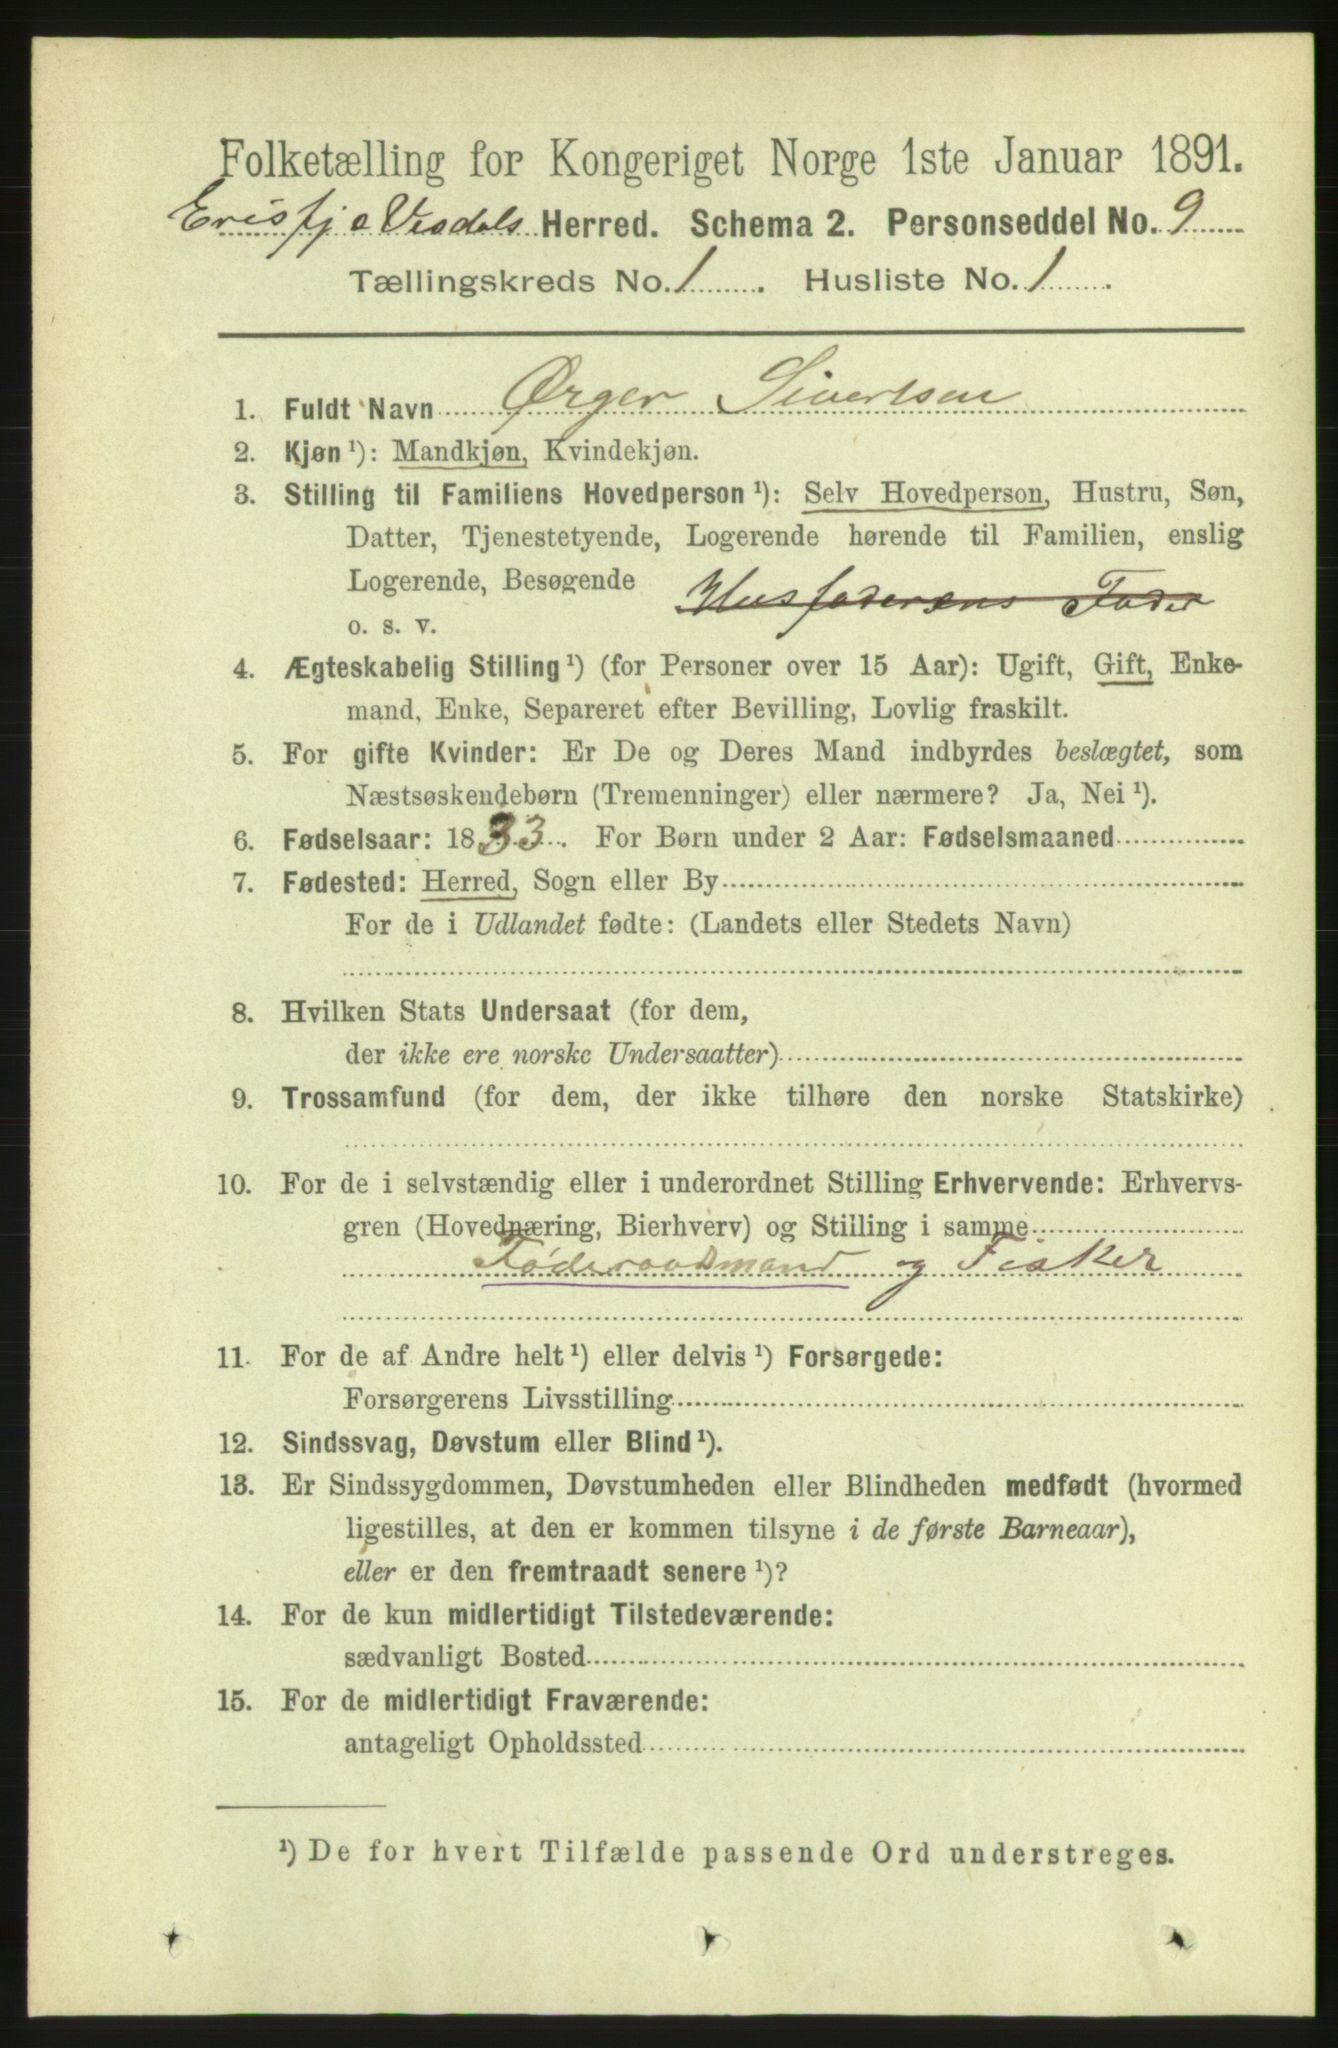 Folketælling for Kongeriget Norge 1ste Januar 1891.
Erisfj o Visdals Herred. Schema 2. Personseddel No. 9
Tællingskreds No. 1 . Husliste No. 1 .
1. Fuldt Navn Ørger Sivertsen
2. Kjøn ¹): Mandkjøn, Kvindekjøn.
3. Stilling til Familiens Hovedperson ¹): Selv Hovedperson, Hustru, Søn,
Datter, Tjenestetyende, Logerende hørende til Familien, enslig
Logerende, Besøgende Husfaderens Fader
o. s. v.
4. Ægteskabelig Stilling ¹) (for Personer over 15 Aar): Ugift, Gift, Enke-
mand, Enke, Separeret efter Bevilling, Lovlig fraskilt.
5. For gifte Kvinder: Er De og Deres Mand indbyrdes beslægtet, som
Næstsøskendebørn (Tremenninger) eller nærmere? Ja, Nei ¹).
6. Fødselsaar: 1833. For Børn under 2 Aar: Fødselsmaaned
7. Fødested: Herred, Sogn eller By
For de i Udlandet fødte: (Landets eller Stedets Navn)
8. Hvilken Stats Undersaat (for dem,
der ikke ere norske Undersaatter)
9. Trossamfund (for dem, der ikke tilhøre den norske Statskirke)
10. For de i selvstændig eller i underordnet Stilling Erhvervende: Erhvervs-
gren (Hovednæring, Bierhverv) og Stilling i samme
Føderaadsmand og Fisker
11. For de af Andre helt ¹) eller delvis ¹) Forsørgede:
Forsørgerens Livsstilling
12. Sindssvag, Døvstum eller Blind ¹).
13. Er Sindssygdommen, Døvstumheden eller Blindheden medfødt (hvormed
ligestilles, at den er kommen tilsyne i de første Barneaar),
eller er den fremtraadt senere ¹)?
14. For de kun midlertidigt Tilstedeværende:
sædvanligt Bosted
15. For de midlertidigt Fraværende:
antageligt Opholdssted
¹) De for hvert Tilfælde passende Ord understreges.